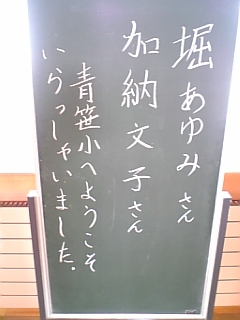 堀あゆみさん
加納文子さん
青笹小へようこそ
いらっしゃいました。